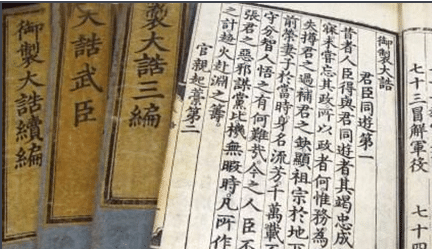 七十三冒解軍役
七十四
御製大誥
君臣同遊第一
昔者人臣得與君同遊者其竭忠成
寐未嘗忘其政所以政者何惟務為
失撙君之過補君之缺顯祖宗於地
前榮妻子於當時身名流芳千萬載
守分智人悟之有何難哉今之人臣不
張君之惡邪謀黨比機無暇時凡所作
之計趨火赴淵之籌
官親起藁第二
製大誥三編
大誥武臣
御製大誥續編